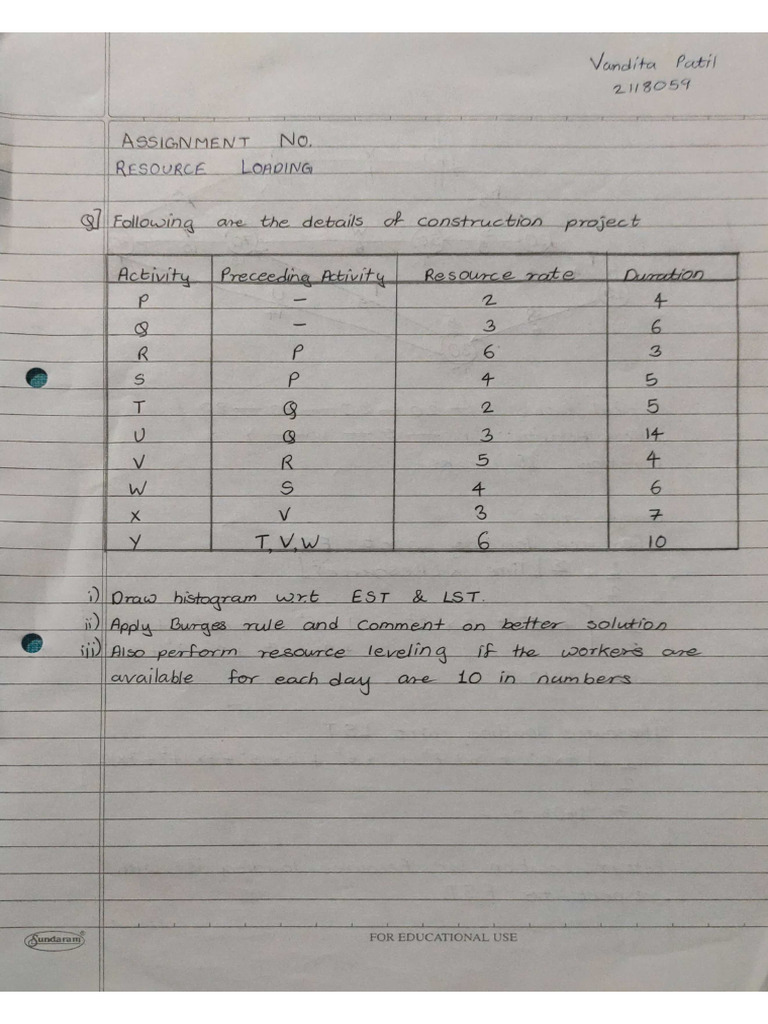 Vandita Patil
2118059
ASSIGNMENT NO.
RESOURCE LOADING
Q] Following are the details of construction project
Activity Preceeding Activity Resource rate Duration
P – 2 4
Q – 3 6
R P 6 3
S P 4 5
T Q 2 5
U Q 3 14
V R 5 4
W S 4 6
X V 3 7
Y T, V, W 6 10
i) Draw histogram w.r.t EST & LST.
ii) Apply Burges rule and comment on better solution
iii) Also perform resource leveling if the workers are
available for each day are 10 in numbers
Sundaram
FOR EDUCATIONAL USE